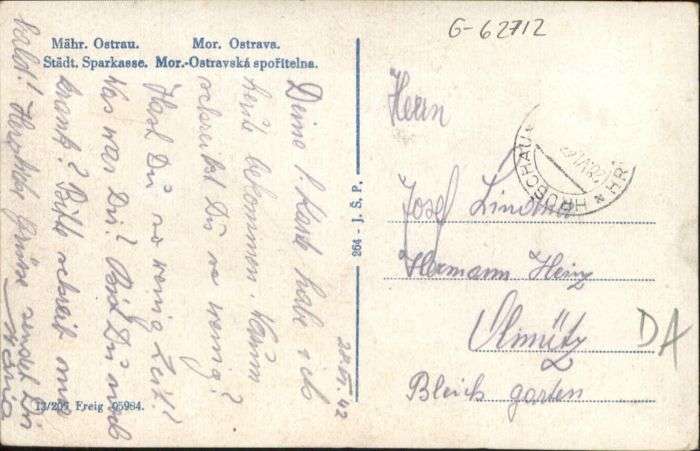 G-62712
Mähr. Ostrau. Mor. Ostrava.
Städt. Sparkasse. Mor.-Ostravská spořitelna.
28.VI.42
Deine l. Karte habe ich
heute bekommen. Warum
schreibst Du so wenig?
Hast Du so wenig Zeit?
Was war Dir? Bist Du noch
krank? Bitte schreib mir
bald! Herzliche Grüsse sendet Dir
264 - J. Š. P.
13/205 Freig 05964.
HRUSCHAU
Herrn
Josef
Hermann Heinz
Olmütz
Bleich garten
DA